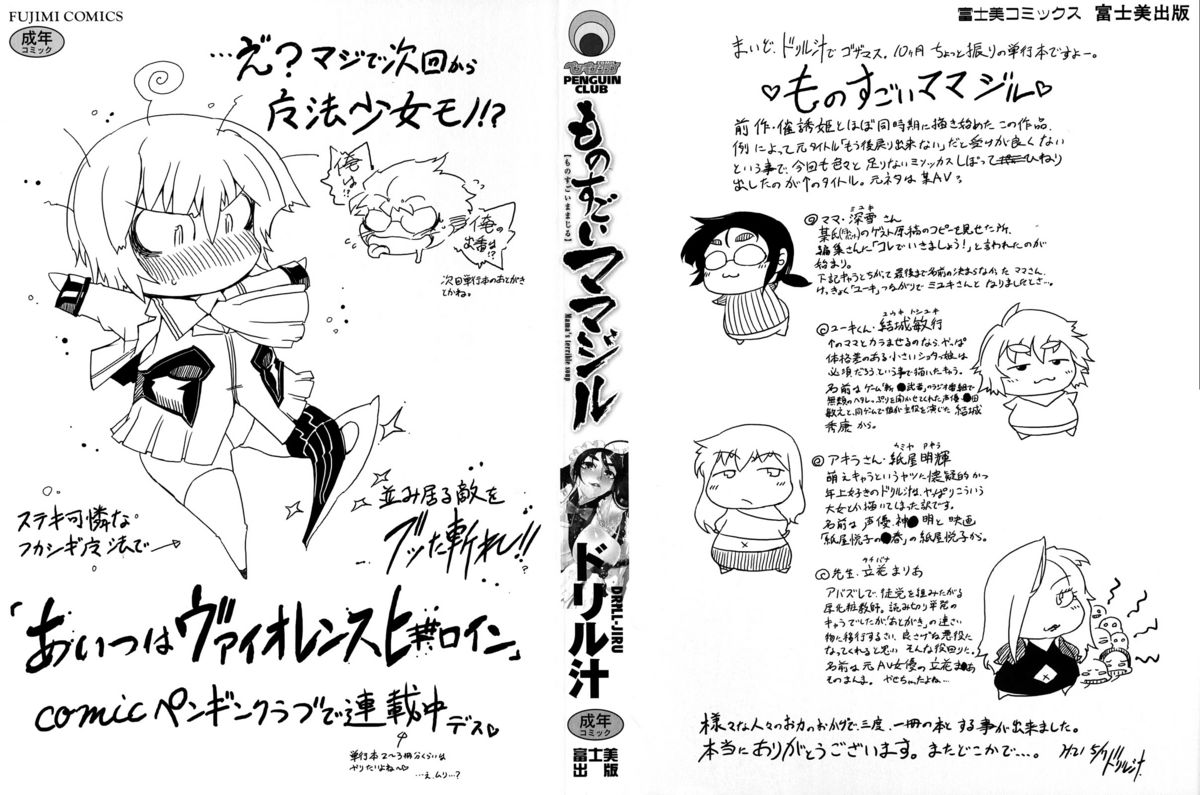 FUJIMI COMICS
成年
コミック
…え?マジで次回から
魔法少女モノ!?
俺は!?
俺の
出番は!?
次回単行本のあとがき
とかね。
ステキ可憐な
フカシギ魔法で
並み居る敵を
ブッた斬れ!!
?
「あいつはヴァイオレンスヒロイン」
comicペンギンクラブで連載中デス♡
単行本2〜3冊分くらいは
やりたいよね〜♡
…え、ムリ…?
PENGUIN
CLUB
ものすごいママジル
【ものすごいままじる】
Mama's terrible soup
ドリル汁
DRILL-JIRU
成年
コミック
富士美
出版
富士美コミックス 富士美出版
まいど、ドリル汁でゴザマス。10ヶ月ちょっと振りの単行本ですよー。
♡ものすごいママジル♡
前作・催誘姫とほぼ同時期に描き始めたこの作品、
例によって元タイトル「もう後戻り出来ない」だと受けが良くない
という事で、今回も色々と足りないミソッカスしぼってひねり
出したのがこのタイトル。元ネタは某AV?
ミユキ
◎ママ・深雪さん
のゲスト原稿のコピーを見せた所、
編集さんに「コレでいきましょう!」と言われたのが
始まり。
下記キャラとちがって最後まで名前の決まらなかったママさん、
けっきょく「ユーキ」つながりでミユキさんとなりましたとさ…。
ユウキ トシユキ
◎ユーキくん・結城敏行
このママとカラませるのなら、やっぱ
体格差のある小さいショタっ娘は
必須だろうという事で描いたキャラ。
名前はゲーム「斬●武者」のラジオ番組で
無類のヘタレっぷりを聞かせてくれた声優・●田
敏さんと、同ゲームで彼が主役を演じた結城
秀康から。
カミヤ アキラ
◎アキラさん・紙屋明輝
萌えキャラというヤツに懐疑的かつ
年上好きのドリル汁は、やっぱりこういう
大女しか描いてしまった訳です。
名前は声優・神●明と映画
「紙屋悦子の●春」の紙屋悦子から。
タチバナ
◎先生・立花まりあ
アバズレで、徒党を組みたがる
厚化粧教師。読み切り単発の
キャラでしたが「あとがき」の濃い
物に移行するさい、良さげな悪役に
なってくれると思いそんな役回りに。
名前は元AV女優の立花ま●あ
そのまんま。やせちゃったよね…
様々な人々のお力のおかげで、三度、一冊の本とする事が出来ました。
本当にありがとうございます。またどこかで…。
H21 5/7 ドリル汁